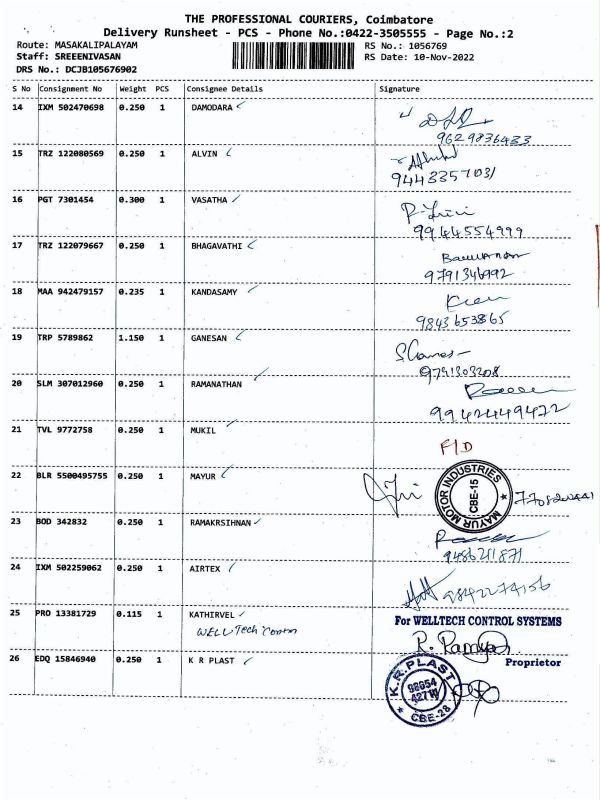 THE PROFESSIONAL COURIERS, Coimbatore
Delivery Runsheet - PCS - Phone No.:0422-3505555 - Page No.:2
Route: MASAKALIPALAYAM RS No.: 1056769
Staff: SREEENIVASAN RS Date: 10-Nov-2022
DRS No.: DCJB105676902
S No Consignment No Weight PCS Consignee Details Signature
14 IXM 502470698 0.250 1 DAMODARA
9629836433
15 TRZ 122080569 0.250 1 ALVIN
9443357031
16 PGT 7301454 0.300 1 VASATHA
9944554999
17 TRZ 122079667 0.250 1 BHAGAVATHI
9791346992
18 MAA 942479157 0.235 1 KANDASAMY
9843653865
19 TRP 5789862 1.150 1 GANESAN
9791303208
20 SLM 307012960 0.250 1 RAMANATHAN
9942449472
21 TVL 9772758 0.250 1 MUKIL
F/D
22 BLR 5500495755 0.250 1 MAYUR
MAYUR MOTOR INDUSTRIES
CBE-15
23 BOD 342832 0.250 1 RAMAKRSIHNAN
9486211871
24 IXM 502259062 0.250 1 AIRTEX
9842274156
25 PRO 13381729 0.115 1 KATHIRVEL For WELLTECH CONTROL SYSTEMS
WELL Tech Contro
R. Ramya
Proprietor
26 EDQ 15846940 0.250 1 K R PLAST
K.R.PLAST
98654
42710
CBE-28